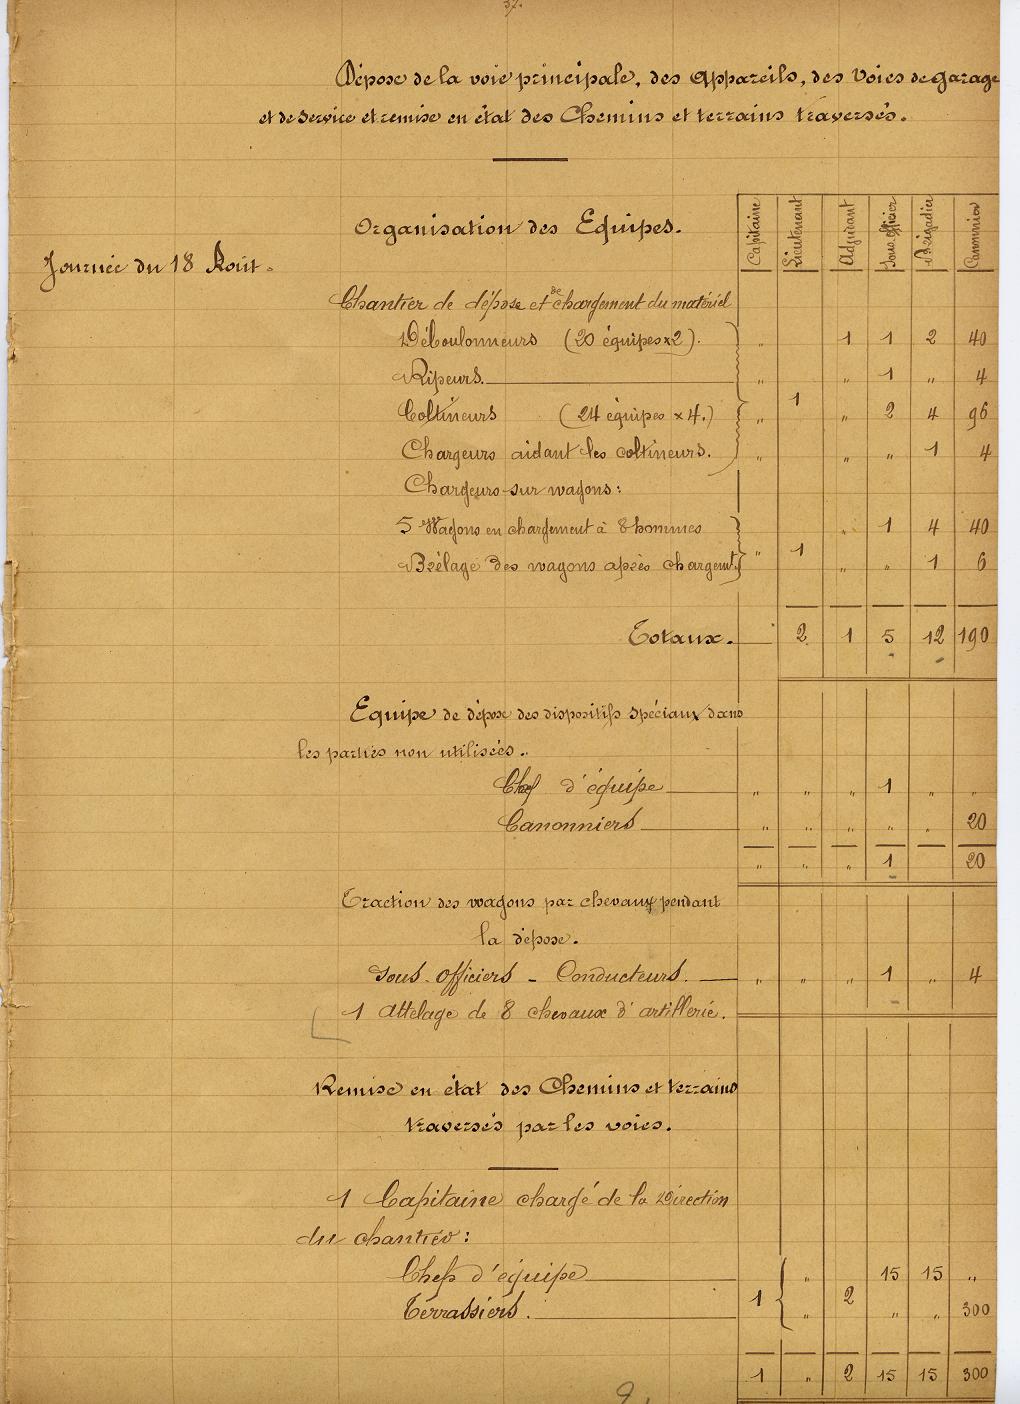 37.
Dépose de la voie principale, des Appareils, des Voies de garage
et de service et remise en état des Chemins et terrains traversés.
Capitaine Lieutenant Adjudant Sous-officier Brigadier Canonnier
Organisation des Equipes.
Journée du 18 Août.
Chantier de dépose et de chargement du matériel
Déboulonneurs (20 équipes x 2). „ 1 1 2 40
Ripeurs. „ „ 1 „ 4
1
Coltineurs (24 équipes x 4.) „ „ 2 4 96
Chargeurs aidant les coltineurs. „ „ „ 1 4
Chargeurs sur wagons :
5 Wagons en chargement à 8 hommes „ 1 4 40
„ 1
Brêlage des wagons après chargemt. „ „ 1 6
Totaux. 2 1 5 12 190
Equipe de dépose des dispositifs spéciaux dans
les parties non utilisées.
Chef d'équipe „ „ „ 1 „ „
Canonniers „ „ „ „ „ 20
„ „ „ 1 20
Traction des wagons par chevaux pendant
la dépose.
Sous-Officiers - Conducteurs. „ „ „ 1 „ 4
1 Attelage de 8 chevaux d'artillerie.
Remise en état des Chemins et terrains
traversés par les voies.
1 Capitaine chargé de la Direction
du chantier :
Chefs d'équipe „ 15 15 „
1 2
Terrassiers. „ „ „ 300
1 „ 2 15 15 300